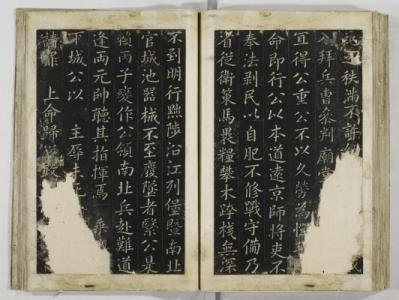 秩滿不許
入拜兵曹叅判廟堂
宜得公重公不以久勞為憚
命即行公以本道遠京師將吏不
奉法剥民以自肥不修戰守備乃
省從衛策馬裹糧攀木跨棧無深
不到明行黜陟沿江列堡暨南北
官城池器械不至隳墜者繄公是
賴丙子變作公領南北兵赴難道
逢兩元帥聽其指揮焉 乘
下城公以 主辱未
上命歸